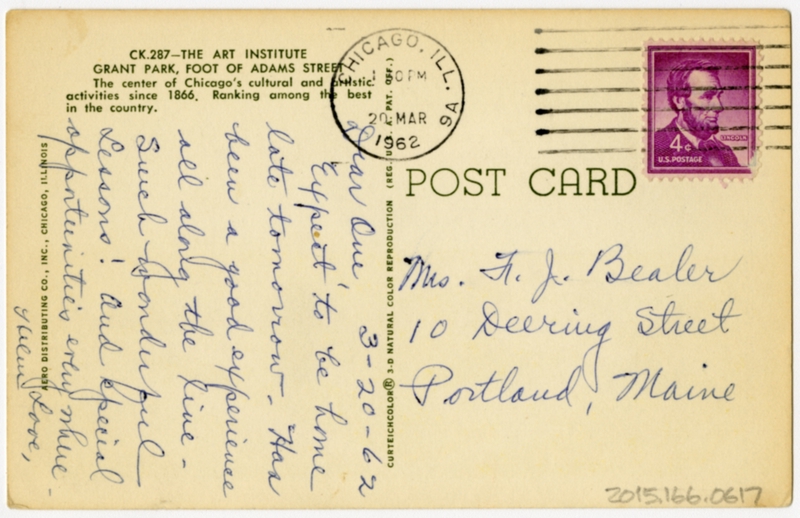 CK.287—THE ART INSTITUTE
GRANT PARK, FOOT OF ADAMS STREET
The center of Chicago's cultural and artistic
activities since 1866. Ranking among the best
in the country.
CHICAGO, ILL.
PM
20 MAR
1962
9A
4¢
LINCOLN
U.S. POSTAGE
POST CARD
AERO DISTRIBUTING CO., INC., CHICAGO, ILLINOIS
CURTEICHCOLOR® 3-D NATURAL COLOR REPRODUCTION (REG. U.S. PAT. OFF.)
3-20-62
Dear One
Expect to be home
late tomorrow. Has
been a good experience
all along the line -
Such wonderful
Lessons! And special
opportunities everywhere -
Love,
Helen
Mrs. F. J. Bealer
10 Deering Street
Portland, Maine
2015.166.0617